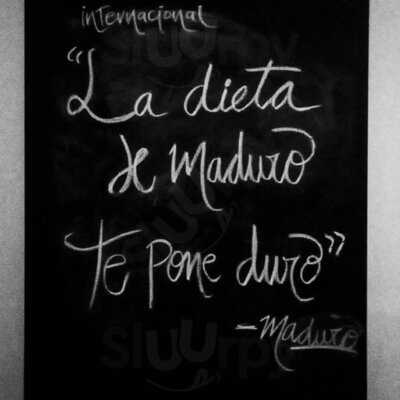 internacional
"La dieta
de Maduro
te pone duro"
- Maduro
Sluurpy
Sluurpy
Sluurpy